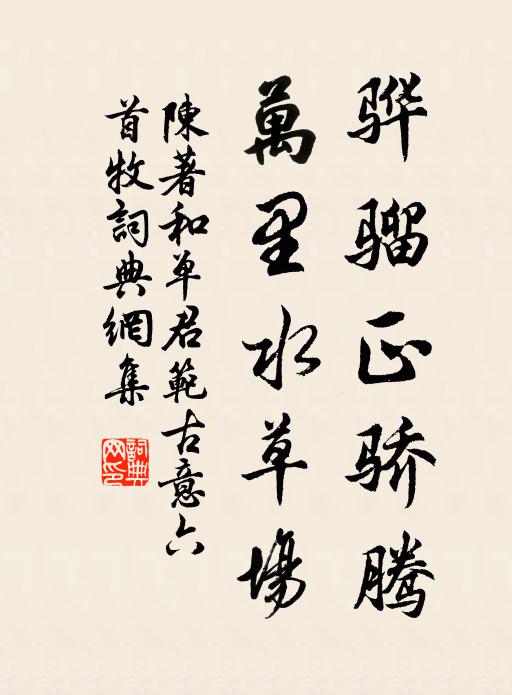 骅骝正骄腾
萬里水草場
陳著和单君範古意六
首牧詞典網集
詞典网印